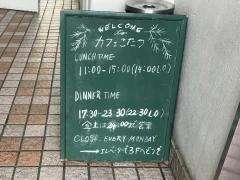 WELCOME
to
カフェこたつ
LUNCH TIME
11:00-15:00(14:00L.O)
DINNER TIME
17:30-23:30(22:30L.O)
金土は24:00まで営業
CLOSE EVERY MONDAY
→エレベーターで3Fへどうぞ